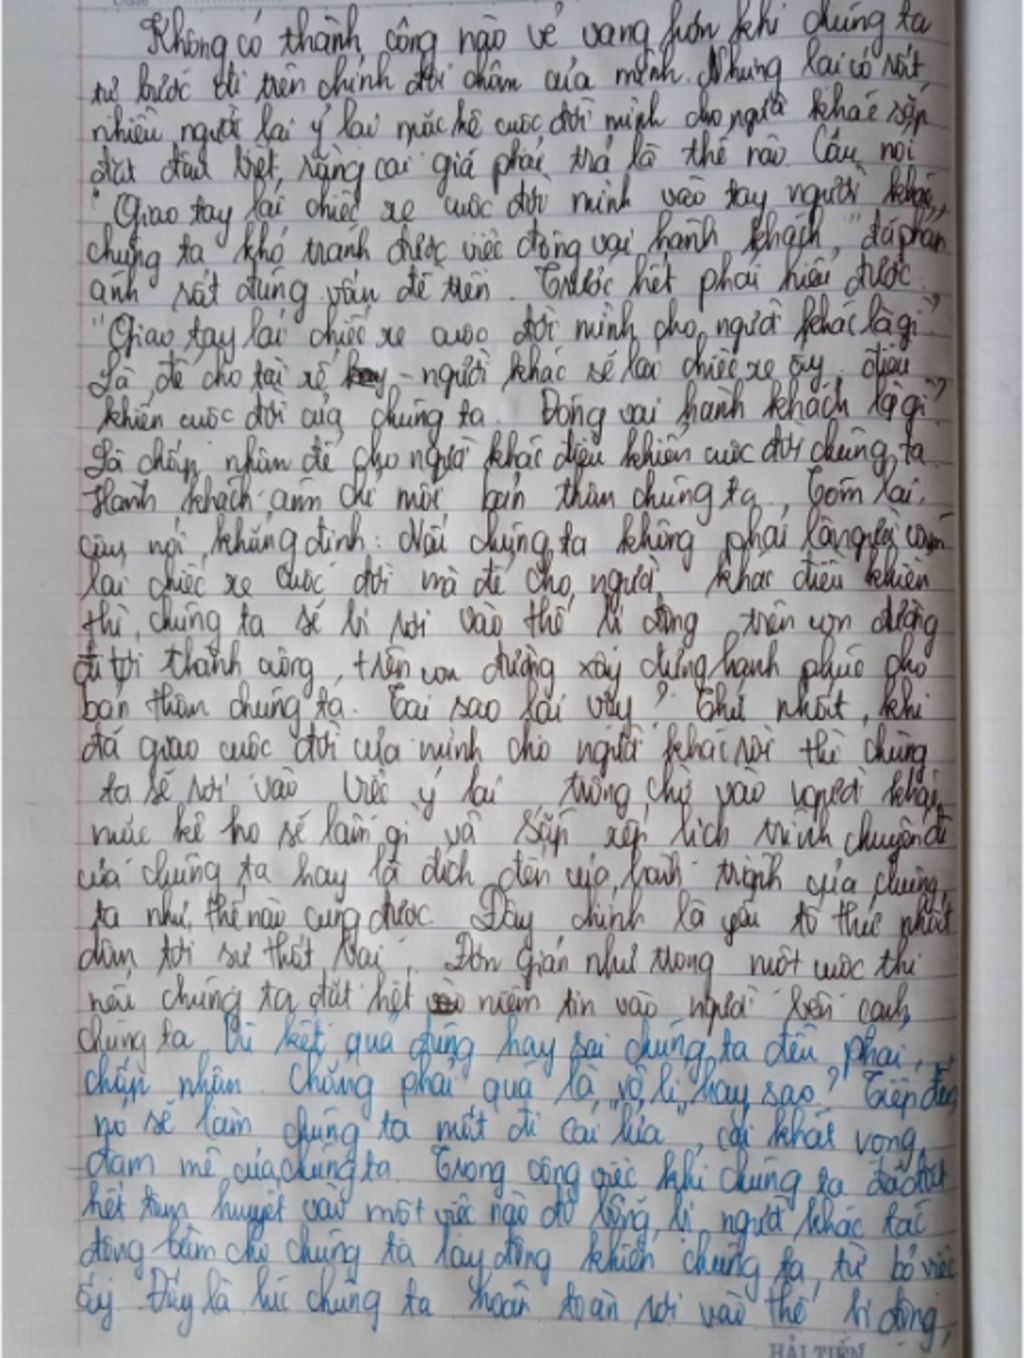 Không có thành công nào vẻ vang hơn khi chúng ta
tự bước đi trên chính đôi chân của mình. Nhưng lại có rất
nhiều người lại ỷ lại mặc kệ cuộc đời mình cho người khác sắp
đặt đâu biết rằng cái giá phải trả là thế nào. Câu nói
"Giao tay lái chiếc xe cuộc đời mình vào tay người khác,
chúng ta khó tránh được việc đóng vai hành khách" đã phản
ánh rất đúng vấn đề trên. Trước hết phải hiểu được
"Giao tay lái chiếc xe cuộc đời mình cho người khác là gì?
Là để cho tài xế - người khác sẽ lái chiếc xe ấy, điều
khiển cuộc đời của chúng ta. Đóng vai hành khách là gì?
Là chấp nhận để cho người khác điều khiển cuộc đời chúng ta
Hành khách ám chỉ mỗi bản thân chúng ta. Tóm lại,
câu nói khẳng định: Nếu chúng ta không phải là người cầm
lái chiếc xe cuộc đời mà để cho người khác điều khiển
thì chúng ta sẽ bị rơi vào thế bị động trên con đường
đi tới thành công, trên con đường xây dựng hạnh phúc cho
bản thân chúng ta. Tại sao lại vậy? Thứ nhất, khi
đã giao cuộc đời của mình cho người khác rồi thì chúng
ta sẽ rơi vào việc ỷ lại trông chờ vào người khác
mặc kệ họ sẽ làm gì và sắp xếp lịch trình chuyến đi
của chúng ta hay là đích đến của hành trình của chúng
ta như thế nào cũng được. Đây chính là yếu tố thứ nhất
dẫn tới sự thất bại. Đơn giản như trong một cuộc thi
nếu chúng ta đặt hết niềm tin vào người bên cạnh
chúng ta. Dù kết quả đúng hay sai chúng ta đều phải
chấp nhận. Chẳng phải quá là "vô lí" hay sao? Tiếp đến
nó sẽ làm chúng ta mất đi cái lửa, cái khát vọng,
đam mê của chúng ta. Trong công việc khi chúng ta đã đặt
hết tâm huyết vào một việc nào đó bỗng bị người khác tác
động làm cho chúng ta lay động khiến chúng ta từ bỏ việc
ấy. Đấy là lúc chúng ta hoàn toàn rơi vào thế bị động,
HẢI TIẾN